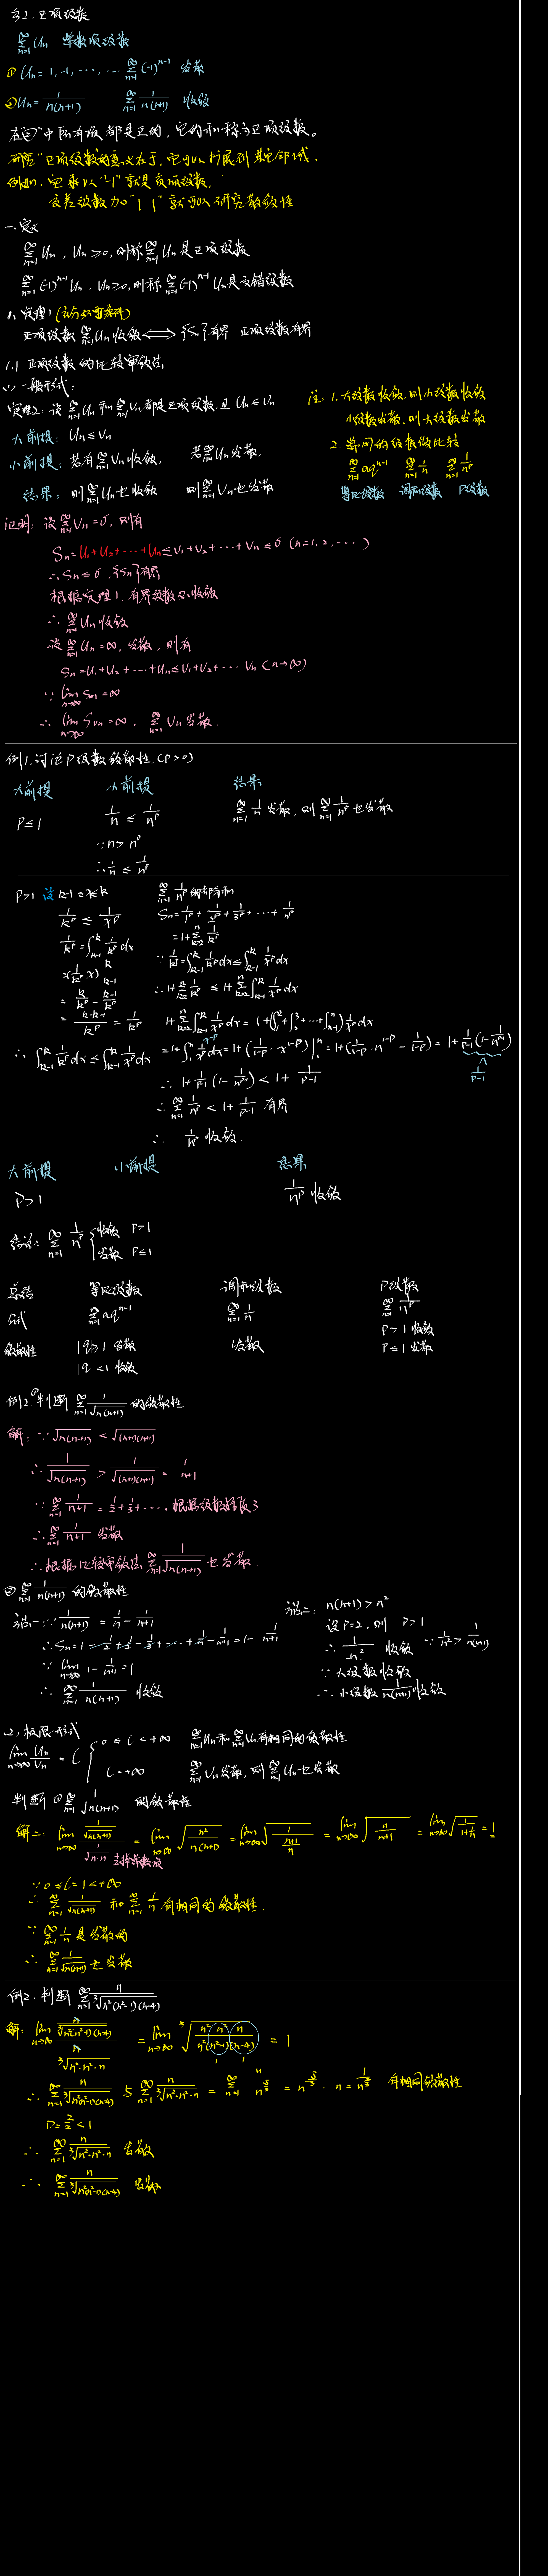 §2. 正项级数
∑_{n=1}^{∞} Un 常数项级数
① Un = 1, -1, ..., ... ∑_{n=1}^{∞} (-1)^{n-1} 发散
② Un = 1/n(n+1) ∑_{n=1}^{∞} 1/n(n+1) 收敛
在②中所有项都是正的，它的和称为正项级数。
研究"正项级数"的意义在于，它可以扩展到其它领域，
例如，它乘以"-1"就是负项级数，
交差级数加"| |"就可以研究敛散性
一、定义
∑_{n=1}^{∞} Un, Un ≥ 0, 则称 ∑_{n=1}^{∞} Un 是正项级数
∑_{n=1}^{∞} (-1)^{n-1} Un, Un ≥ 0, 则称 ∑_{n=1}^{∞} (-1)^{n-1} Un 是交错级数
1、定理1 (充分必要条件)
正项级数 ∑_{n=1}^{∞} Un 收敛 ⟺ {Sn} 有界 正项级数有界
1.1 正项级数的比较审敛法
(1) 一般形式：
定理2：设 ∑_{n=1}^{∞} Un 和 ∑_{n=1}^{∞} Vn 都是正项级数, 且 Un ≤ Vn
大前提：Un ≤ Vn
小前提：若有 ∑_{n=1}^{∞} Vn 收敛, 若 ∑_{n=1}^{∞} Un 发散,
结果：则 ∑_{n=1}^{∞} Un 也收敛 则 ∑_{n=1}^{∞} Vn 也发散
注：1. 大级数收敛, 则小级数收敛
小级数发散, 则大级数发散
2. 常用的级数做比较
∑_{n=1}^{∞} aq^{n-1} ∑_{n=1}^{∞} 1/n ∑_{n=1}^{∞} 1/n^p
等比级数 调和级数 P级数
证明：设 ∑_{n=1}^{∞} Vn = σ, 则有
Sn = U1 + U2 + ... + Un ≤ V1 + V2 + ... + Vn ≤ σ (n = 1, 2, ...)
∴ Sn ≤ σ, {Sn} 有界
根据定理1, 有界级数必收敛
∴ ∑_{n=1}^{∞} Un 收敛
设 ∑_{n=1}^{∞} Un = ∞, 发散, 则有
Sn = U1 + U2 + ... + Un ≤ V1 + V2 + ... Vn (n→∞)
∵ lim_{n→∞} Sun = ∞
∴ lim_{n→∞} Svn = ∞, ∑_{n=1}^{∞} Vn 发散.
例1. 讨论P级数敛散性. (P > 0)
大前提 小前提 结果
P ≤ 1 1/n ≤ 1/n^p ∑_{n=1}^{∞} 1/n 发散, 则 ∑_{n=1}^{∞} 1/n^p 也发散
∵ n > n^p
∴ 1/n ≤ 1/n^p
P > 1 设 k-1 ≤ x ≤ k
1/k^p ≤ 1/x^p
1/k^p = ∫_{k-1}^{k} 1/k^p dx
= (1/k^p x)|_{k-1}^{k}
= k/k^p - (k-1)/k^p
= (k-k-1)/k^p = 1/k^p
∴ ∫_{k-1}^{k} 1/k^p dx ≤ ∫_{k-1}^{k} 1/x^p dx
∑_{n=1}^{∞} 1/n^p 的部分和
Sn = 1/1^p + 1/2^p + 1/3^p + ... + 1/n^p
= 1 + ∑_{k=2}^{n} 1/k^p
∵ 1/k^p = ∫_{k-1}^{k} 1/k^p dx ≤ ∫_{k-1}^{k} 1/x^p dx
∴ 1 + ∑_{k=2}^{n} 1/k^p ≤ 1 + ∑_{k=2}^{n} ∫_{k-1}^{k} 1/x^p dx
1 + ∑_{k=2}^{n} ∫_{k-1}^{k} 1/x^p dx = 1 + (∫_1^2 + ∫_2^3 + ... + ∫_{n-1}^{n}) 1/x^p dx
= 1 + ∫_1^n 1/x^p dx = 1 + (1/(1-p) · x^{1-p})|_1^n = 1 + (1/(1-p) · n^{1-p} - 1/(1-p)) = 1 + 1/(p-1) (1 - 1/n^{p-1})
x^{-p}
∧
1/(p-1)
∴ 1 + 1/(p-1) (1 - 1/n^{p-1}) < 1 + 1/(p-1)
∴ ∑_{n=1}^{∞} 1/n^p < 1 + 1/(p-1) 有界
∴ 1/n^p 收敛.
大前提 小前提 结果
P > 1 1/n^p 收敛
结论：∑_{n=1}^{∞} 1/n^p { 收敛 P > 1
发散 P ≤ 1
总结 等比级数 调和级数 P级数
公式 ∑_{n=1}^{∞} aq^{n-1} ∑_{n=1}^{∞} 1/n ∑_{n=1}^{∞} 1/n^p
敛散性 |q| ≥ 1 发散 发散 P > 1 收敛
|q| < 1 收敛 P ≤ 1 发散
例2. ①判断 ∑_{n=1}^{∞} 1/√(n(n+1)) 的敛散性
解：∵ √(n(n+1)) < √((n+1)(n+1))
∴ 1/√(n(n+1)) > 1/√((n+1)(n+1)) = 1/(n+1)
∵ ∑_{n=1}^{∞} 1/(n+1) = 1/2 + 1/3 + ..., 根据级数性质3
∴ ∑_{n=1}^{∞} 1/(n+1) 发散
∴ 根据比较审敛法 ∑_{n=1}^{∞} 1/√(n(n+1)) 也发散.
② ∑_{n=1}^{∞} 1/n(n+1) 的敛散性
法一：∵ 1/n(n+1) = 1/n - 1/(n+1)
∴ Sn = 1 - 1/2 + 1/2 - 1/3 + ... + 1/n - 1/(n+1) = 1 - 1/(n+1)
∵ lim_{n→∞} 1 - 1/(n+1) = 1
∴ ∑_{n=1}^{∞} 1/n(n+1) 收敛
法二：n(n+1) > n²
设 P = 2, 则 P > 1
∴ 1/n² 收敛 ∵ 1/n² > 1/n(n+1)
∵ 大级数收敛
∴ 小级数 1/n(n+1) 收敛
(2) 极限形式
lim_{n→∞} Un/Vn = l { 0 ≤ l < +∞ ∑_{n=1}^{∞} Un 和 ∑_{n=1}^{∞} Vn 有相同的敛散性
l = +∞ ∑_{n=1}^{∞} Vn 发散, 则 ∑_{n=1}^{∞} Un 也发散
判断 ① ∑_{n=1}^{∞} 1/√(n(n+1)) 的敛散性
解二：lim_{n→∞} (1/√(n(n+1)))/(1/√(n·n)) = lim_{n→∞} √(n²/n(n+1)) = lim_{n→∞} √(1/((n+1)/n)) = lim_{n→∞} √(n/(n+1)) = lim_{n→∞} √(1/(1+1/n)) = 1
去掉常数项
∵ 0 ≤ l = 1 < +∞
∴ ∑_{n=1}^{∞} 1/√(n(n+1)) 和 ∑_{n=1}^{∞} 1/n 有相同的敛散性.
∵ ∑_{n=1}^{∞} 1/n 是发散的
∴ ∑_{n=1}^{∞} 1/√(n(n+1)) 也发散
例2. 判断 ∑_{n=1}^{∞} n/∛(n²(n²-1)(n-4))
解：lim_{n→∞} (n/∛(n²(n²-1)(n-4)))/(n/∛(n²·n²·n)) = lim_{n→∞} ∛(n²·n²·n/(n²(n²-1)(n-4))) = 1
1 1
∴ ∑_{n=1}^{∞} n/∛(n²(n²-1)(n-4)) 与 ∑_{n=1}^{∞} n/∛(n²·n²·n) = ∑_{n=1}^{∞} n/n^{5/3} = n^{-5/3} · n = 1/n^{2/3} 有相同敛散性
P = 2/3 < 1
∴ ∑_{n=1}^{∞} n/∛(n²·n²·n) 发散
∴ ∑_{n=1}^{∞} n/∛(n²(n²-1)(n-4)) 发散